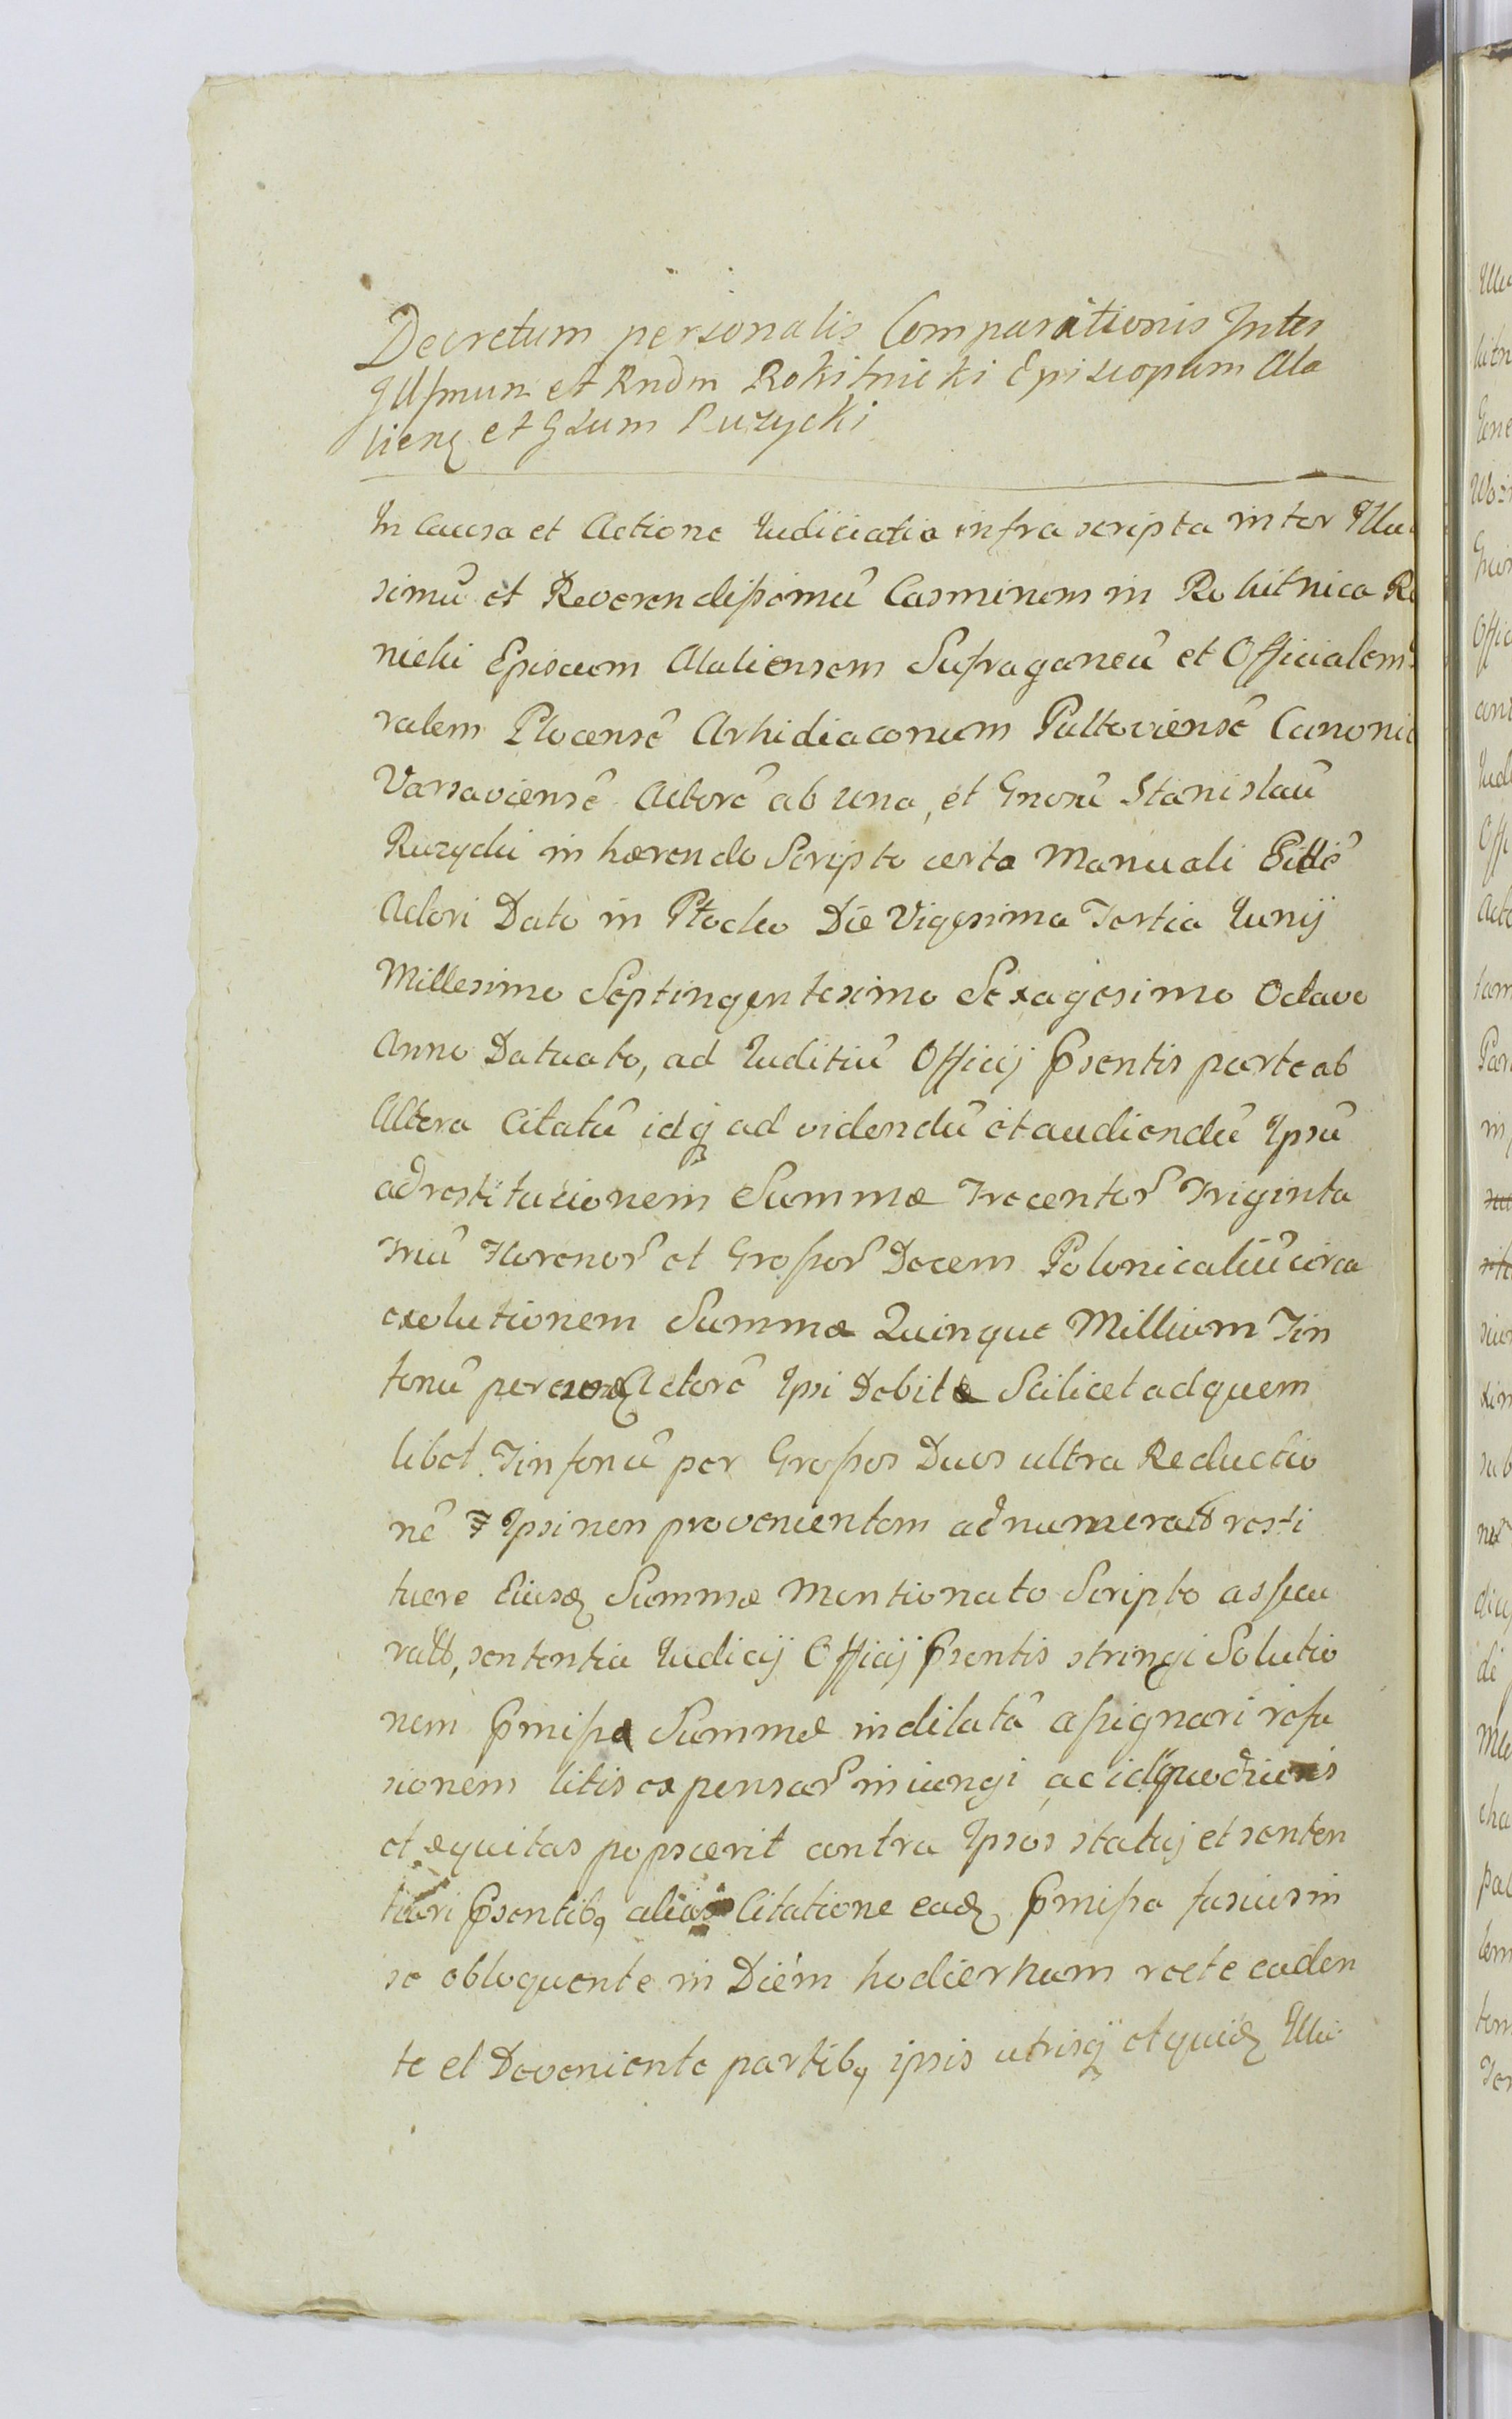 Decretum personalis Comparitionis Inter
Illsmum et Rndm Rokitnicki Episcopum Ala
liensẽ et Gsum Puzycki
In Causa et Actione Iudiciaria infra scripta inter Illu
simũ et Reverendissimũ Casmirum in Rokitnica Ro
nicki Episcum Alaliensem Sufraganeũ et Officialem
ralem Plocensẽ Arhidiaconum Pultoviensẽ Canonic
Varsaviensẽ Actorẽ ab una, et Gnosũ Stanislaũ
Ruzycki in hærendo Scripto certo Manuali
Actori Dato in Plocko Die Vigesima Tertia Iunij
Millesimo Septingentesimo Sexagesimo Octavo
Anno Datuato, ad Iuditiũ Officij Pśentis parte ab
Altera Citatũ idq̃ ad videndũ et audiendũ Ipsũ
ad restitutionem Summæ Trecentor̃ Triginta
Triũ Florenor̃ et Grossor̃ Decem Polonicaliũ circa
exolutionem Summæ Quinque Millium Tin
fonũ per Actorẽ Ipsi Debitæ Scilicet ad quem
libet Tinfonũ per Grossos Duos ultra Reductio
nẽ Ipsi non provenientem adnumerato resti
tuere Eiusdẽ Summæ Mentionato Scripto assecu
rato, sententia Iudicij Officij Pśentis stringi Solutio
nem Pmissæ Summæ indilatã assignari refu
sionem litis expensar̃ iniungi ac id quod iuris
et æquitas poposcerit contra Ipsos statuj et senten
tiari Pśentibq alias Citatione eadẽ Pmissa fusius in
se obloquente in Diem hodiernum recte caden
te et Deveniente partibq ipsis utrisq̃ et quidẽ Illu